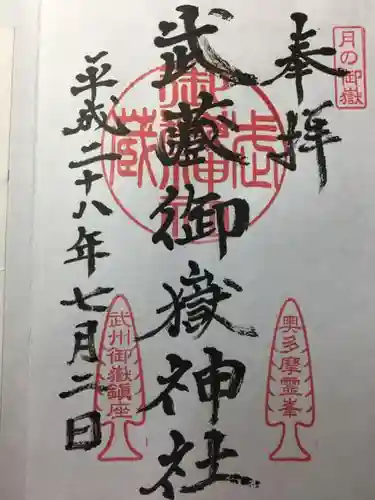 月の御嶽
奉拝
武蔵御嶽神社
平成二十八年七月二日
奥多摩霊峯
武州御嶽鎮座